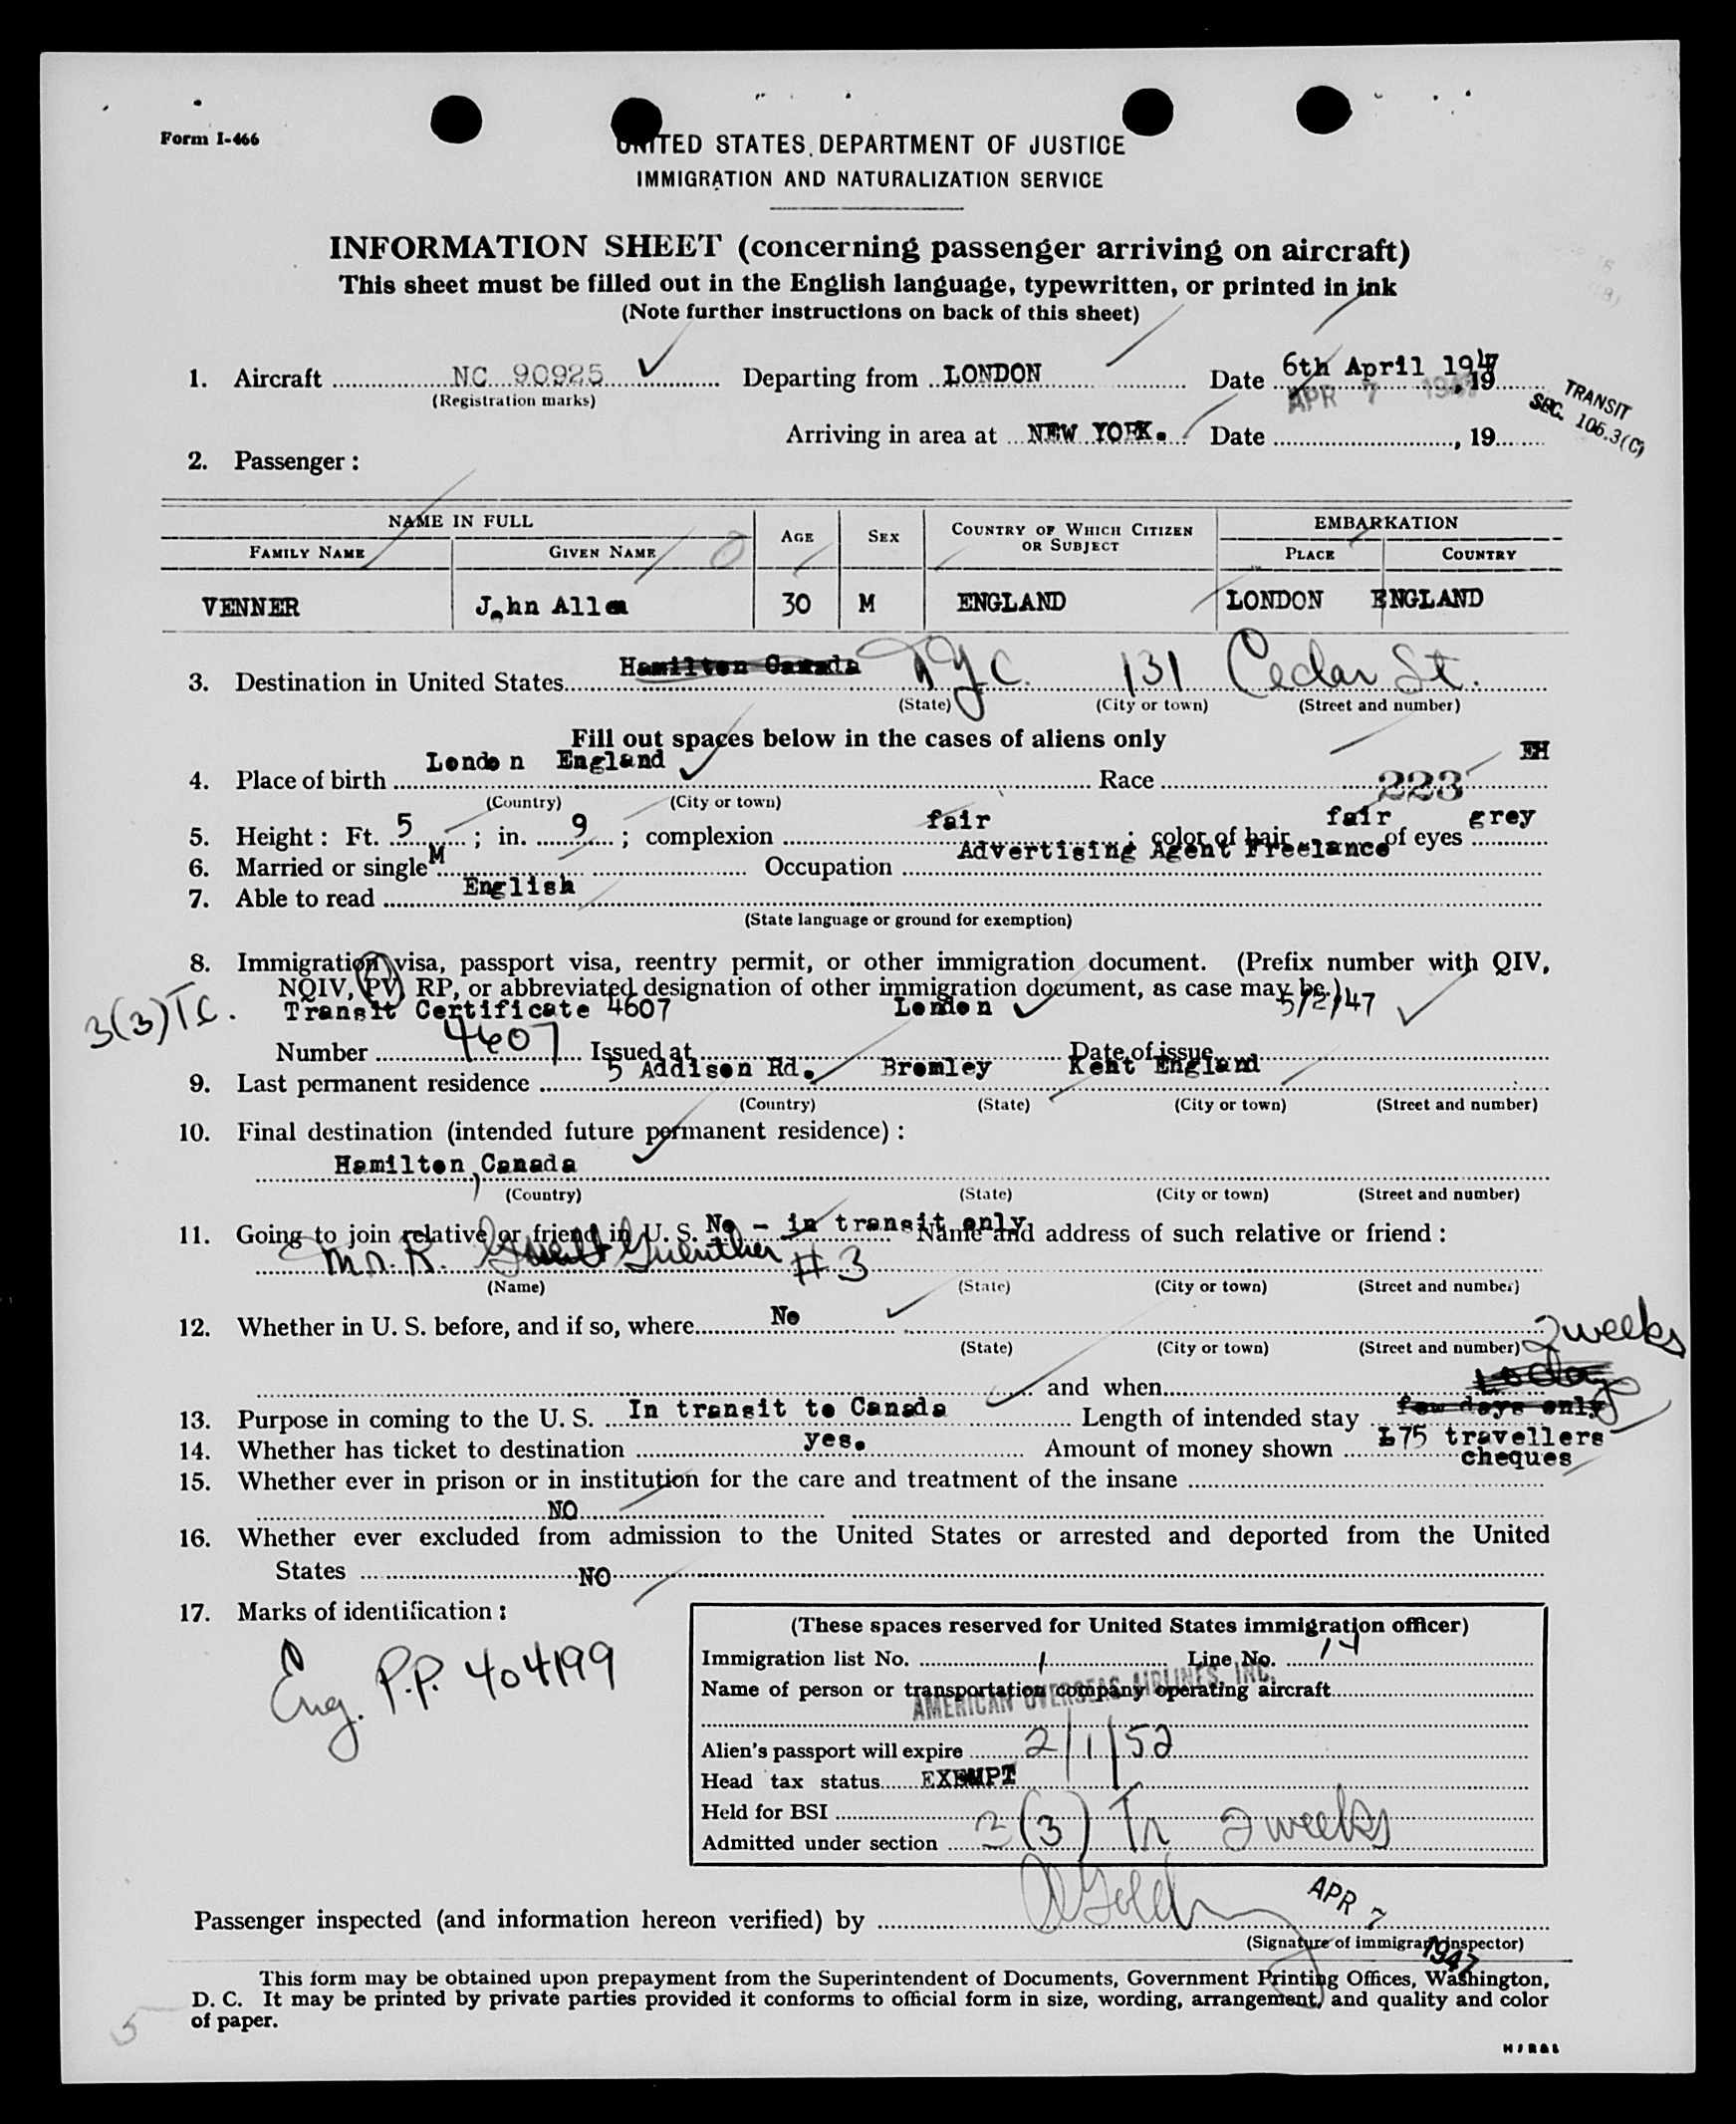 Form I-466
UNITED STATES DEPARTMENT OF JUSTICE
IMMIGRATION AND NATURALIZATION SERVICE
INFORMATION SHEET (concerning passenger arriving on aircraft)
This sheet must be filled out in the English language, typewritten, or printed in ink
(Note further instructions on back of this sheet)
1. Aircraft NC 90925 Departing from LONDON Date 6th April 1947, 19
(Registration marks)
APR 7 1947
TRANSIT
SEC. 106.3(C)
Arriving in area at NEW YORK. Date , 19
2. Passenger :
NAME IN FULL AGE SEX COUNTRY OF WHICH CITIZEN OR SUBJECT EMBARKATION
FAMILY NAME GIVEN NAME PLACE COUNTRY
VENNER John Allen 30 M ENGLAND LONDON ENGLAND
3. Destination in United States Hamilton Canada NYC. 131 Cedar St.
(State) (City or town) (Street and number)
Fill out spaces below in the cases of aliens only
EH
4. Place of birth London England Race 223
(Country) (City or town)
5. Height : Ft. 5 ; in. 9 ; complexion fair ; color of hair fair of eyes grey
6. Married or single M Occupation Advertising Agent Freelance
7. Able to read English
(State language or ground for exemption)
8. Immigration visa, passport visa, reentry permit, or other immigration document. (Prefix number with QIV,
NQIV, PV, RP, or abbreviated designation of other immigration document, as case may be.)
3(3)TC. Transit Certificate 4607 London 5/2/47
Number 4607 Issued at Date of issue
9. Last permanent residence 5 Addison Rd. Bromley Kent England
(Country) (State) (City or town) (Street and number)
10. Final destination (intended future permanent residence) :
Hamilton, Canada
(Country) (State) (City or town) (Street and number)
11. Going to join relative or friend in U. S. No - in transit only Name and address of such relative or friend :
Mr. R. Guenther #3
(Name) (State) (City or town) (Street and number)
12. Whether in U. S. before, and if so, where No
(State) (City or town) (Street and number) 2 weeks
and when
13. Purpose in coming to the U. S. In transit to Canada Length of intended stay few days only
14. Whether has ticket to destination yes. Amount of money shown £75 travellers
cheques
15. Whether ever in prison or in institution for the care and treatment of the insane
NO
16. Whether ever excluded from admission to the United States or arrested and deported from the United
States NO
17. Marks of identification :
Eng. P.P. 404199
(These spaces reserved for United States immigration officer)
Immigration list No. 1 Line No. 14
Name of person or transportation company operating aircraft
AMERICAN OVERSEAS AIRLINES, INC.
Alien's passport will expire 2/1/52
Head tax status EXEMPT
Held for BSI
Admitted under section 3(3) Tr 2 weeks
APR 7 1947
Passenger inspected (and information hereon verified) by
(Signature of immigrant inspector)
This form may be obtained upon prepayment from the Superintendent of Documents, Government Printing Offices, Washington,
D. C. It may be printed by private parties provided it conforms to official form in size, wording, arrangement, and quality and color
of paper.
5